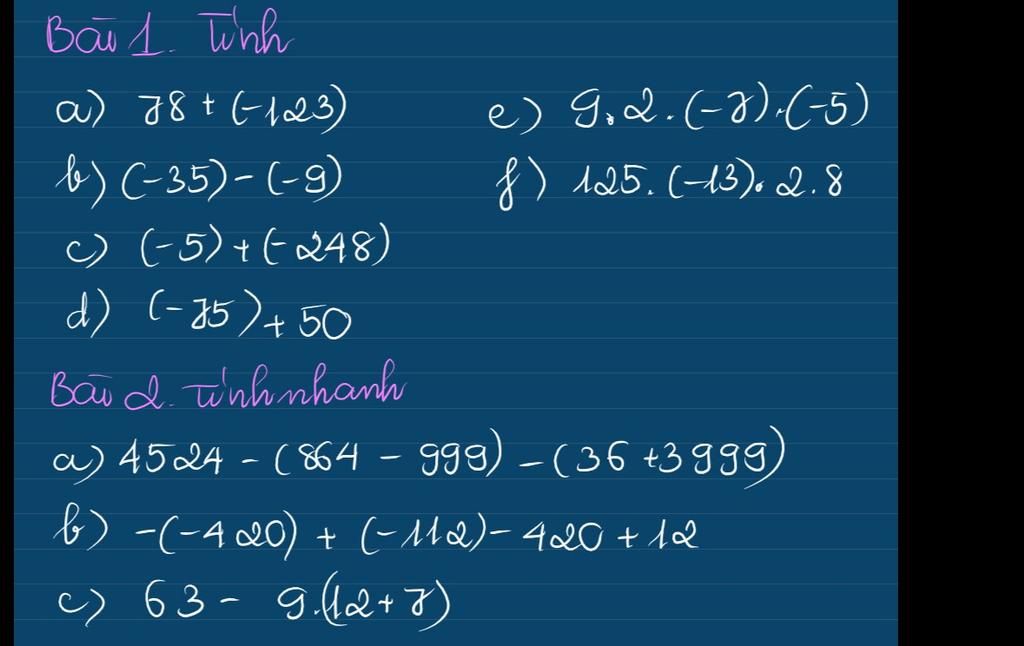 Bài 1. Tính
a) 78 + (-123)
e) 9.2.(-7).(-5)
b) (-35) - (-9)
f) 125.(-13).2.8
c) (-5) + (-248)
d) (-75) + 50
Bài 2. Tính nhanh
a) 4524 - (864 - 999) - (36 + 3999)
b) -(-420) + (-112) - 420 + 12
c) 63 - 9.(12 + 7)